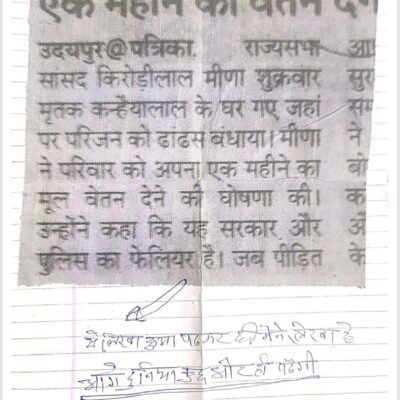 एक महीने का वेतन देंगे
उदयपुर@पत्रिका. राज्यसभा
सांसद किरोड़ीलाल मीणा शुक्रवार सुर
मृतक कन्हैयालाल के घर गए जहां सम
पर परिजन को ढांढस बंधाया। मीणा ने
ने परिवार को अपना एक महीने का बो
मूल वेतन देने की घोषणा की।
उन्होंने कहा कि यह सरकार और
पुलिस का फेलियर है। जब पीड़ित के
ये लिखा हुआ पढकर ही मैने लिखा है
आगे दुनिया कुछ और ही पढेगी